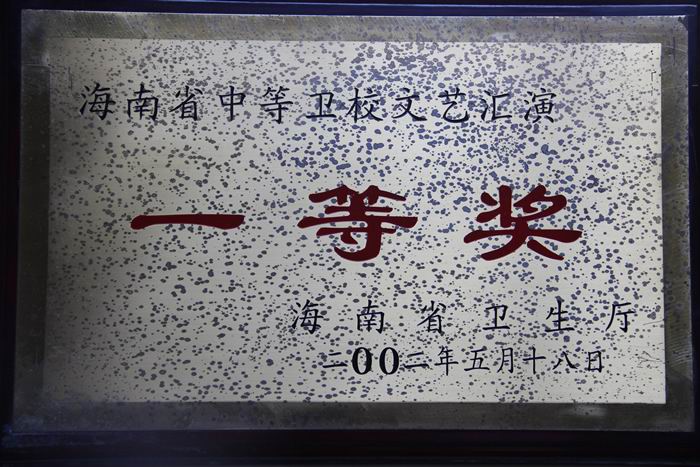 海南省中等卫校文艺汇演
一等奖
海南省卫生厅
二00二年五月十八日